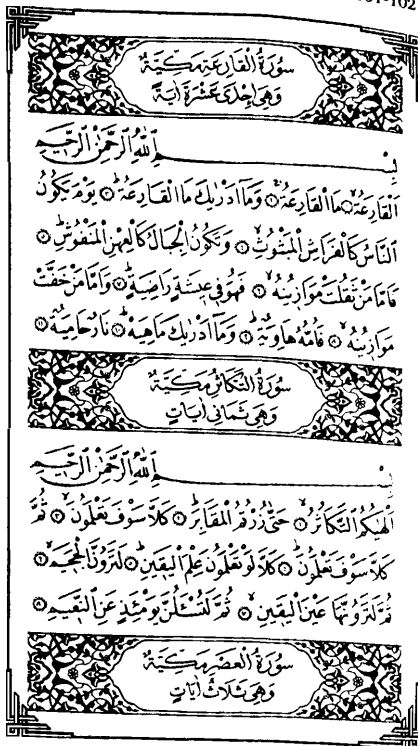 101-102
سُورَةُ الْقَارِعَةِ مَكِّيَّةٌ
وَهِيَ إِحْدَى عَشْرَةَ اٰيَةً
بِسْمِ اللّٰهِ الرَّحْمٰنِ الرَّحِيمِ
اَلْقَارِعَةُ ۙ ١ مَا الْقَارِعَةُ ۚ ٢ وَمَٓا اَدْرٰيكَ مَا الْقَارِعَةُ ۜ ٣ يَوْمَ يَكُونُ
النَّاسُ كَالْفَرَاشِ الْمَبْثُوثِ ۙ ٤ وَتَكُونُ الْجِبَالُ كَالْعِهْنِ الْمَنْفُوشِ ۜ ٥
فَاَمَّا مَنْ ثَقُلَتْ مَوَازِينُهُ ۙ ٦ فَهُوَ فِي عِيشَةٍ رَاضِيَةٍ ۜ ٧ وَاَمَّا مَنْ خَفَّتْ
مَوَازِينُهُ ۙ ٨ فَاُمُّهُ هَاوِيَةٌ ۜ ٩ وَمَٓا اَدْرٰيكَ مَاهِيَهْ ۜ ١٠ نَارٌ حَامِيَةٌ ١١
سُورَةُ التَّكَاثُرِ مَكِّيَّةٌ
وَهِيَ ثَمَانِي اٰيَاتٍ
بِسْمِ اللّٰهِ الرَّحْمٰنِ الرَّحِيمِ
اَلْهٰيكُمُ التَّكَاثُرُ ۙ ١ حَتّٰى زُرْتُمُ الْمَقَابِرَ ۜ ٢ كَلَّا سَوْفَ تَعْلَمُونَ ۙ ٣ ثُمَّ
كَلَّا سَوْفَ تَعْلَمُونَ ۜ ٤ كَلَّا لَوْ تَعْلَمُونَ عِلْمَ الْيَقِينِ ۜ ٥ لَتَرَوُنَّ الْجَحِيمَ ۙ ٦
ثُمَّ لَتَرَوُنَّهَا عَيْنَ الْيَقِينِ ۙ ٧ ثُمَّ لَتُسْـَٔلُنَّ يَوْمَئِذٍ عَنِ النَّعِيمِ ٨
سُورَةُ الْعَصْرِ مَكِّيَّةٌ
وَهِيَ ثَلَاثُ اٰيَاتٍ